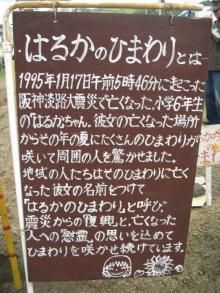 はるかのひまわりとは…
1995年1月17日午前5時46分に起こった
阪神淡路大震災で亡くなった、小学6年生
の「はるかちゃん」。彼女の亡くなった場所
からその年の夏にたくさんのひまわりが
咲いて周囲の人を驚かせました。
地域の人たちはそのひまわりに亡く
なった彼女の名前をつけて
「はるかのひまわり」と呼び、
震災からの「復興」と、亡くなった
人への「慰霊」の思いを込めて
ひまわりを咲かせ続けています。